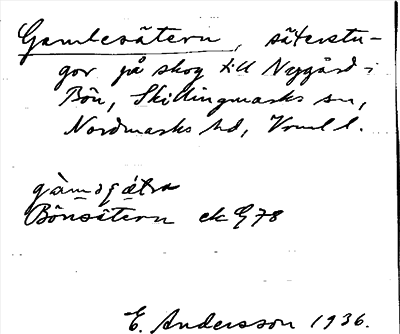 Gamlesätern, säterstu-
gor på skog till Nygård i
Bön, Skillingmarks sn,
Nordmarks hd, Vrml l.
Bönsätern ek G78
E. Andersson 1936.